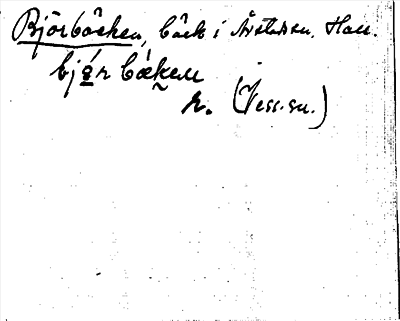 Björbäcken, bäck i Årstad sn. Hall.
bjǿr bǽken
r. (Vess.sn.)